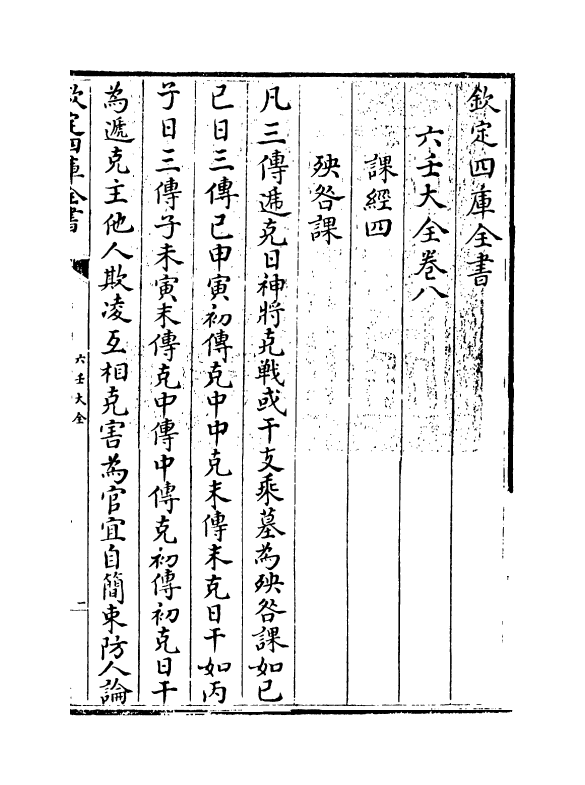 欽定四庫全書
六壬大全卷八
課經四
殃咎課
凡三傳遞克日神將克戰或干支乘墓為殃咎課如已
巳日三傳巳申寅初傳克中中克末傳末克日干如丙
子日三傳子未寅末傳克中傳中傳克初傳初克日干
為遞克主他人欺凌互相克害為官宜自簡束防人論
欽定四庫全書
六壬大全